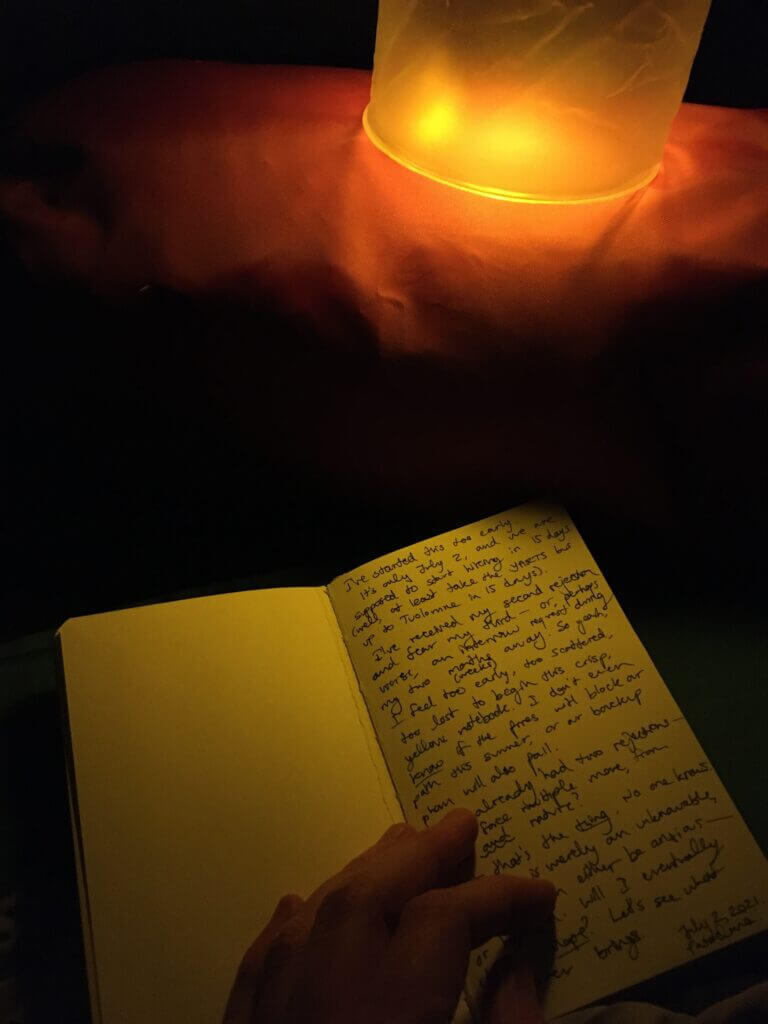 I've started this too early
It's only July 2, and we are
supposed to start hiking in 15 days
(well, at least take the YARTS bus
up to Tuolomne in 15 days).
I've received my second rejection
and fear my third — or, perhaps
worse, an interview request during
my two months (weeks) away. So yeah,
I feel too early, too scattered,
too lost to begin this crisp,
yellow notebook. I don't even
know if the fires will block our
path this summer, or our backup
plan will also fall.
already had two rejections —
face multiple more, from
and
that's the thing. No one knows.
is merely an unknowable,
either be anxious —
will I eventually
or Let's see what
brings
July 2, 2021.